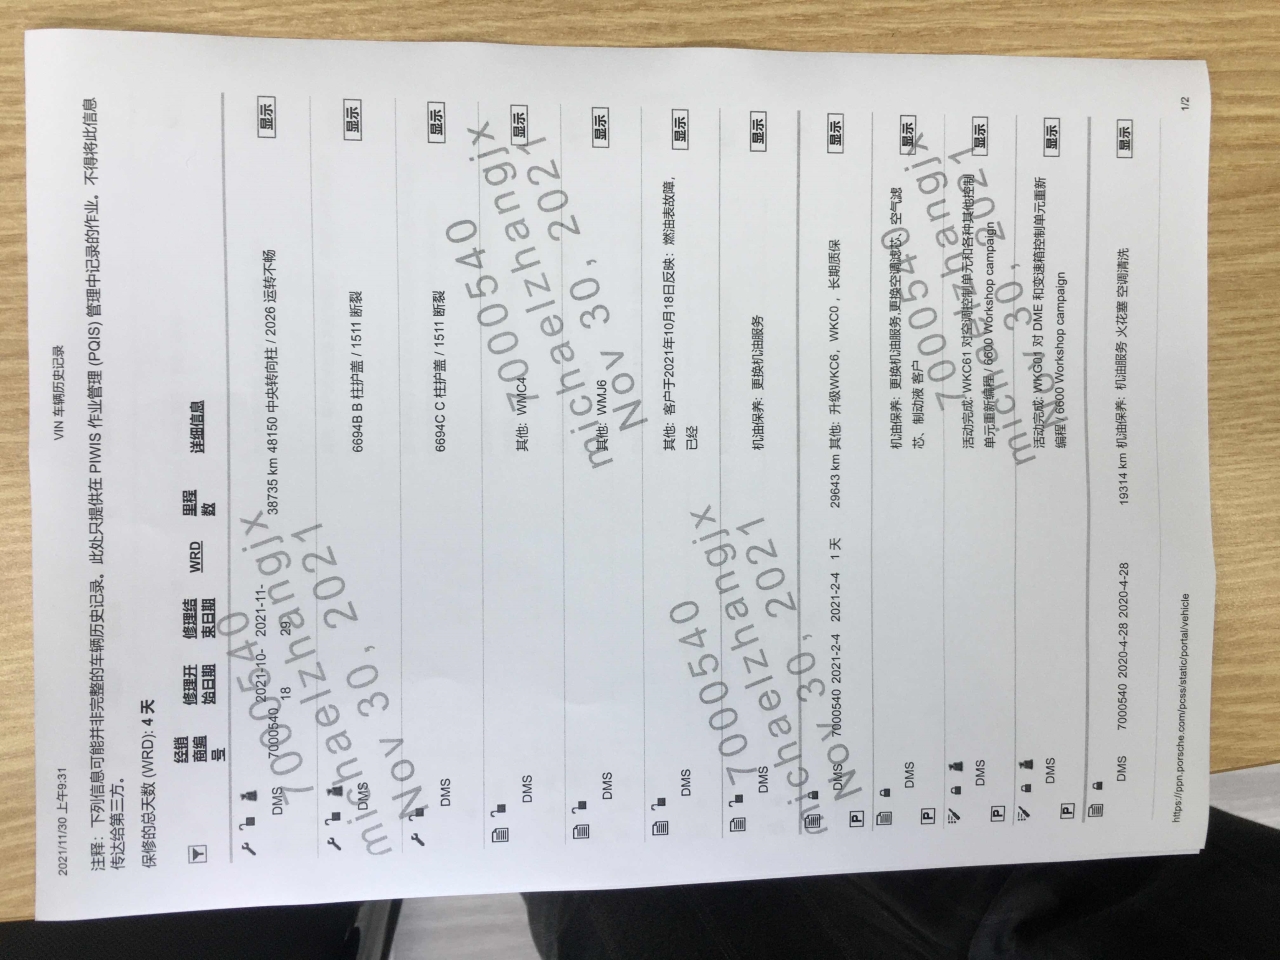 2021/11/30 上午9:31
VIN 车辆历史记录
注释：下列信息可能并非完整的车辆历史记录。此处只提供在 PIWIS 作业管理 (PQIS) 管理中记录的作业。不得将此信息
传达给第三方。
保修的总天数 (WRD): 4 天
经销商编号 修理开始日期 修理结束日期 WRD 里程数 详细信息
DMS 7000540 2021-10-18 2021-11-29 38735 km 48150 中央转向柱 / 2026 运转不畅 显示
DMS 6694B B 柱护盖 / 1511 断裂 显示
DMS 6694C C 柱护盖 / 1511 断裂 显示
DMS 其他: WMC4 显示
DMS 其他: WMJ6 显示
DMS 其他: 客户于2021年10月18日反映：燃油表故障， 显示
已经
DMS 机油保养: 更换机油服务 显示
DMS 7000540 2021-2-4 2021-2-4 1 天 29643 km 其他: 升级WKC6，WKC0，长期质保 显示
P
DMS 机油保养: 更换机油服务,更换空调滤芯、空气滤 显示
芯、制动液 客户
P
DMS 活动完成: WKC61 对空调控制单元和各种其他控制 显示
单元重新编程 / 6600 Workshop campaign
P
DMS 活动完成: WKG01 对 DME 和变速箱控制单元重新 显示
编程 / 6600 Workshop campaign
P
DMS 7000540 2020-4-28 2020-4-28 19314 km 机油保养: 机油服务 火花塞 空调清洗 显示
https://ppn.porsche.com/pcss/static/portal/vehicle
1/2
7000540
michaelzhangjx
Nov 30, 2021
7000540
michaelzhangjx
Nov 30, 2021
7000540
michaelzhangjx
Nov 30, 2021
7000540
michaelzhangjx
Nov 30, 2021